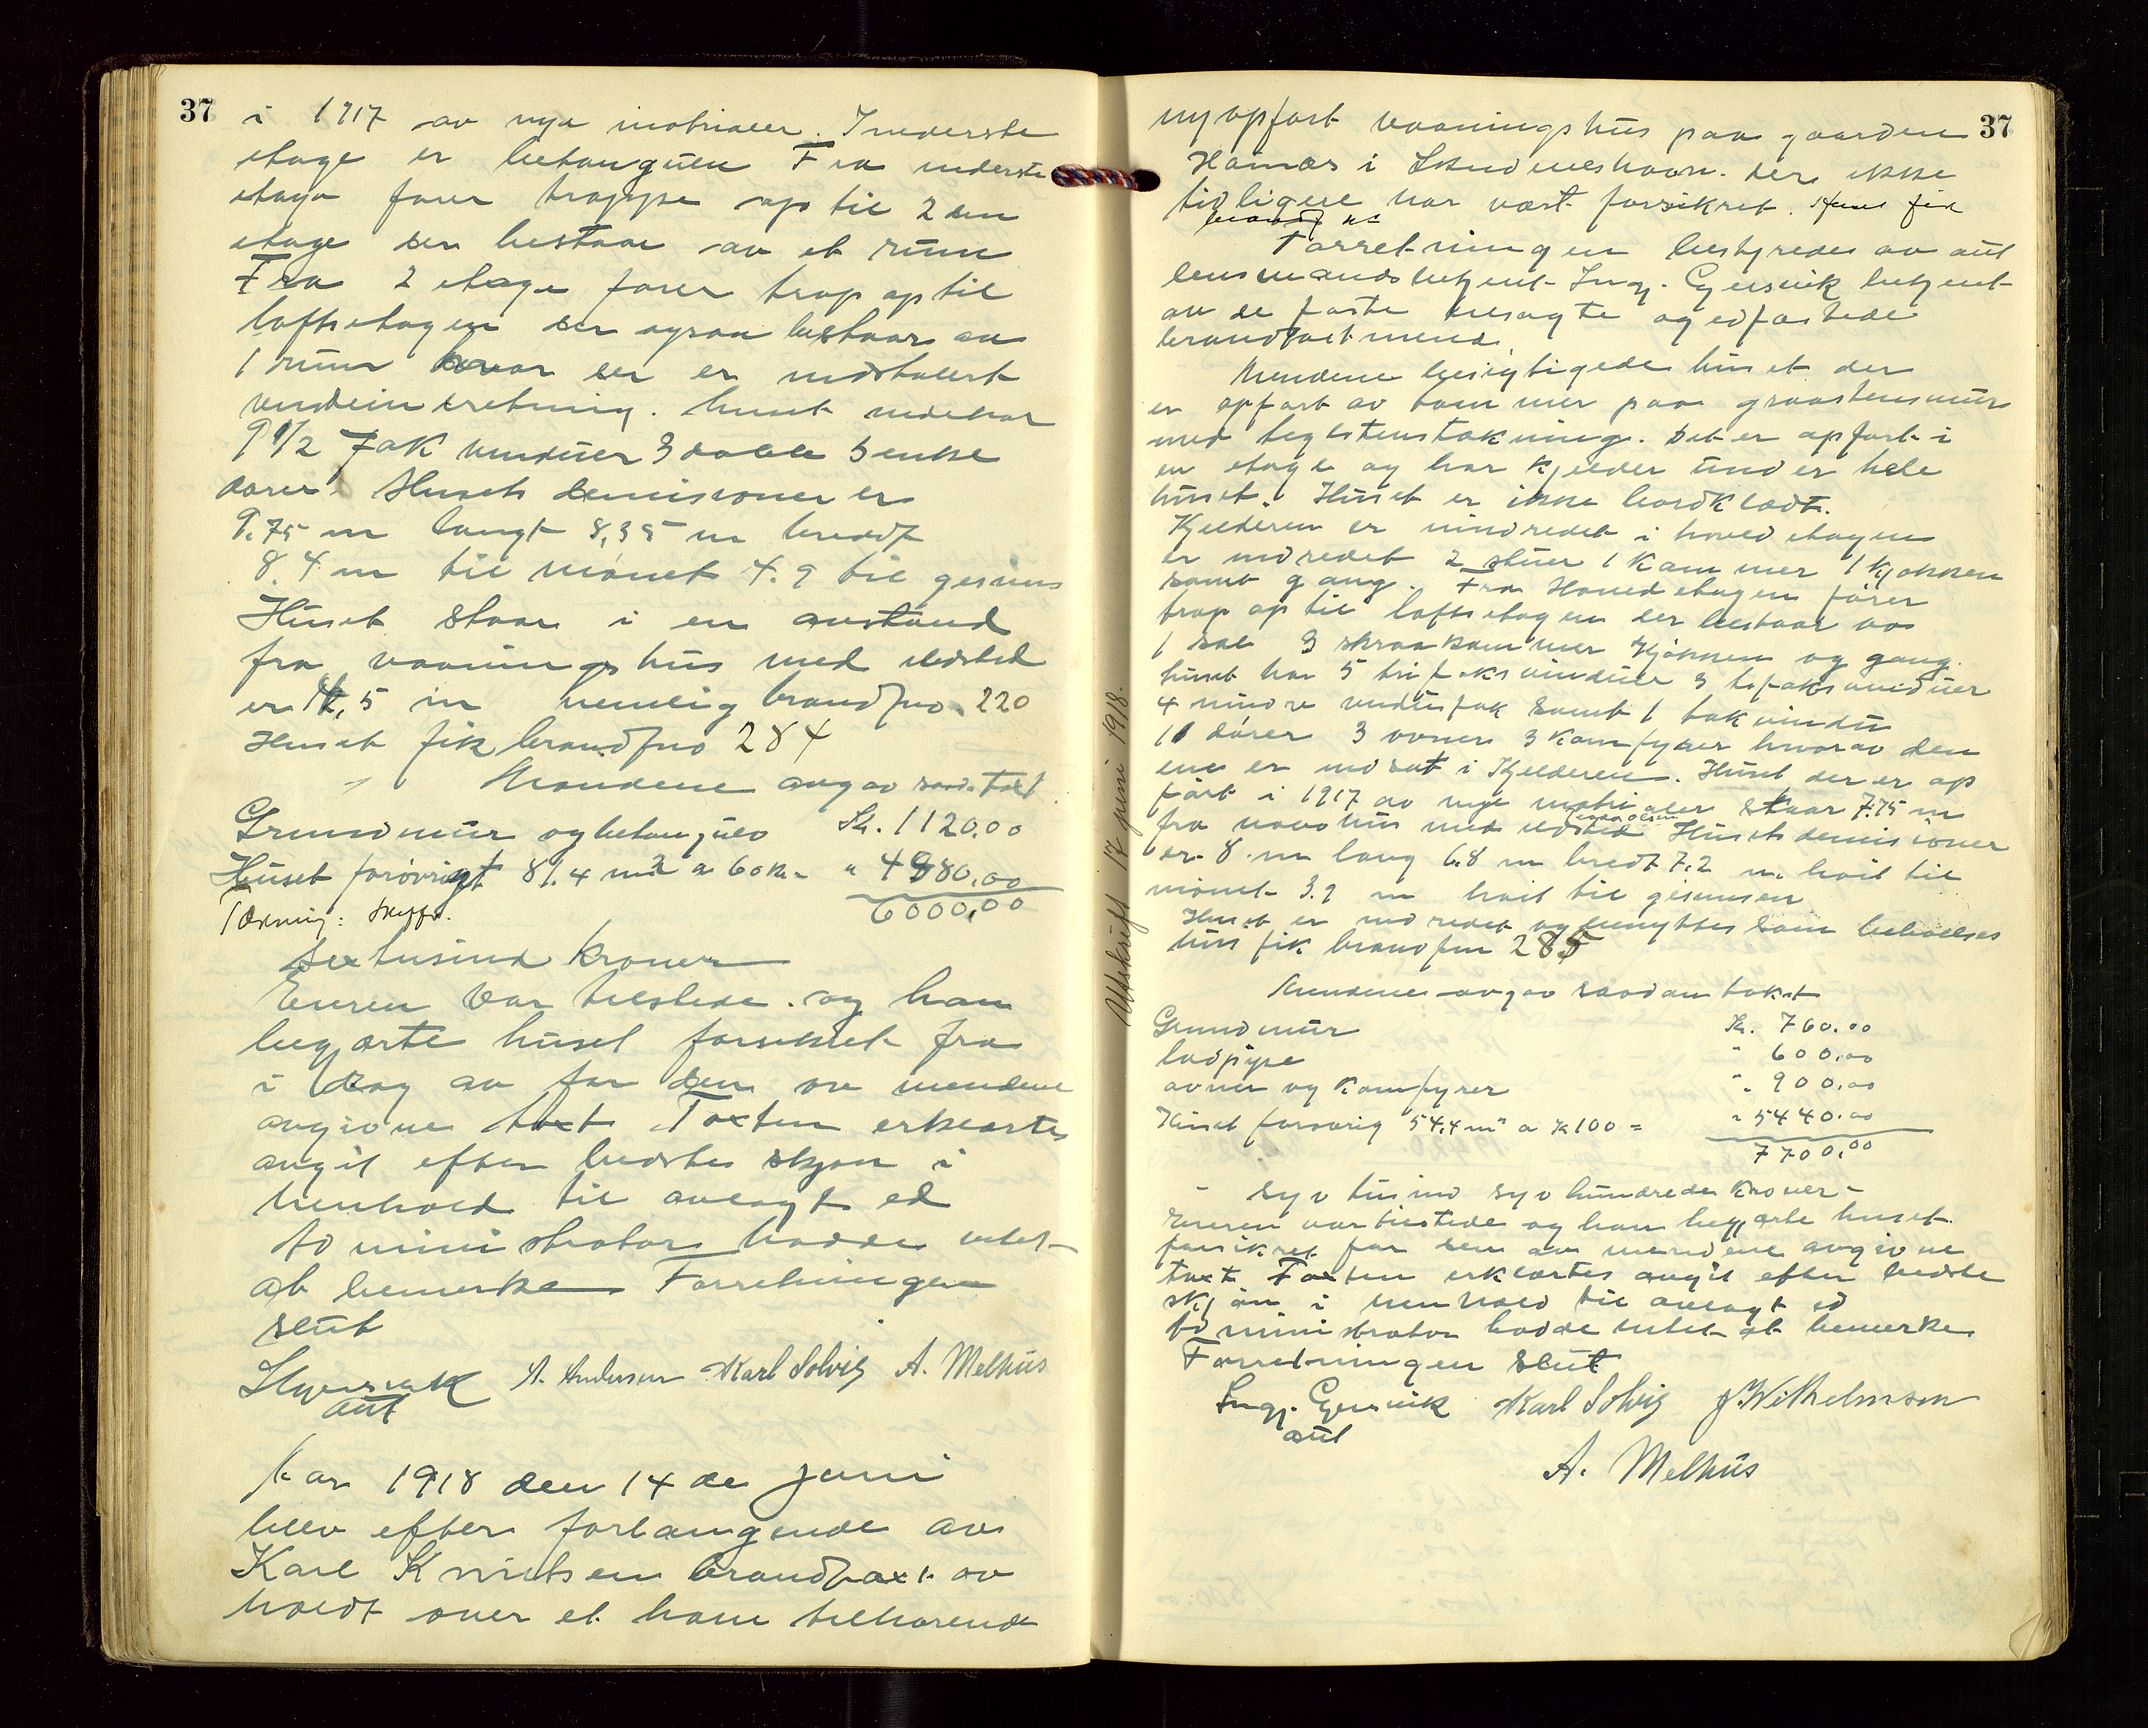 37
i 1917 av nye matrialer. I nederste
etage er betongulv Fra nederste
etage fører trappe op til 2 den
etage der bestaar av et rum
Fra 2 etage fører trap op til
loftsetagen der ogsaa bestaar av
1 rum hvor der er indstalert
vindeindretning. huset indehar
9 1/2 Fak vinduer 3 doble 5 enkle
dører. Husets demisioner er
9.75 m langt 8,35 m bredt
8.4 m til mønet 4.9 til gesims
Huset staar i en avstand
fra vaaningshus med ildsted
er 14,5 m nemlig brandfno. 220
Huset fik brandfno 284
Mændene avgav saad. taxt
Grundmur og betongulv Kr. 1120.00
Huset forøvrigt 81.4 m2 a 60 kr. " 4880.00
6000,00
Tækning: skiffer.
sextusind kroner
Eieren var tilstede. og han
begjærte huset forsikret fra
i dag av for den av mendene
avgivne taxt Taxten erklærtes
avgit efter bedste skjøn i
henhold til avlagt ed
Administrator hadde intet
at bemerke Forretningen
slut
A. Andersen Karl Solvig A. Melhus
aut
Aar 1918 den 14 de juni
blev efter forlangende av
Karl Knutsen brandtaxt av
holdt over et ham tilhørende
Utskrift 17 juni 1918.
37
nyopført vaaningshus paa gaarden
Hamæs i Skudeneshavn. der ikke
tidligere har vært forsikret. Huset fik
brandf no
Forretningen bestyredes av aut
lensmandsbetjent Ingj. Gjersvik betjent
av de faste tilsagte og edfæstede
brandtaxtmend
Mendene besigtigede huset der
er opført av tømmer paa graastensmur
med teglstenstækning. Det er opført i
en etage og har kjelder under hele
huset. Huset er ikke bordklædt.
Kjelderen er uindredet i hoved etagen
er indredet 2 stuer 1 kammer 1 kjøkken
samt gang. Fra Hovedetagen fører
trap op til loftsetagen der bestaar av
1 sal 3 skraakammer kjøkken og gang.
huset har 5 trifaksvinduer 3 tofaksvinduer
4 mindre vindusfak samt 1 takvindu
11 dører 3 ovner 3 kamfyrer hvorav den
ene er indsat i Kjelderen. Huset der er op
ført i 1917 av nye matrialer staar 7.75 m
fra nabohus med ildsted Husets demisioner
er 8 m lang 6.8 m bredt 7.2 m høit til
mønet 3.9 m høit til gesimsen
Huset er indredet og benyttes som beboelses
hus fik brandfno 285
Mendene avgav saadan takst
Grundmur Kr. 760.00
lødpipe " 600.00
ovner og kamfyrer " 900.00
Huset forøvrig 54.4 m2 a k 100 = " 5440.00
7700.00
- syv tusind syv hundrede kroner -
Eieren var tilstede og han begjærte huset
forsikret for den av mendene avgivne
taxt Taxten erklærtes avgit efter bedste
skjøn i henhold til avlagt ed
Administrator hadde intet at bemerke
Forretningen slut
Ingj. Gjersvik Karl Solvig J. Wilhelmsen
aut
A. Melhus